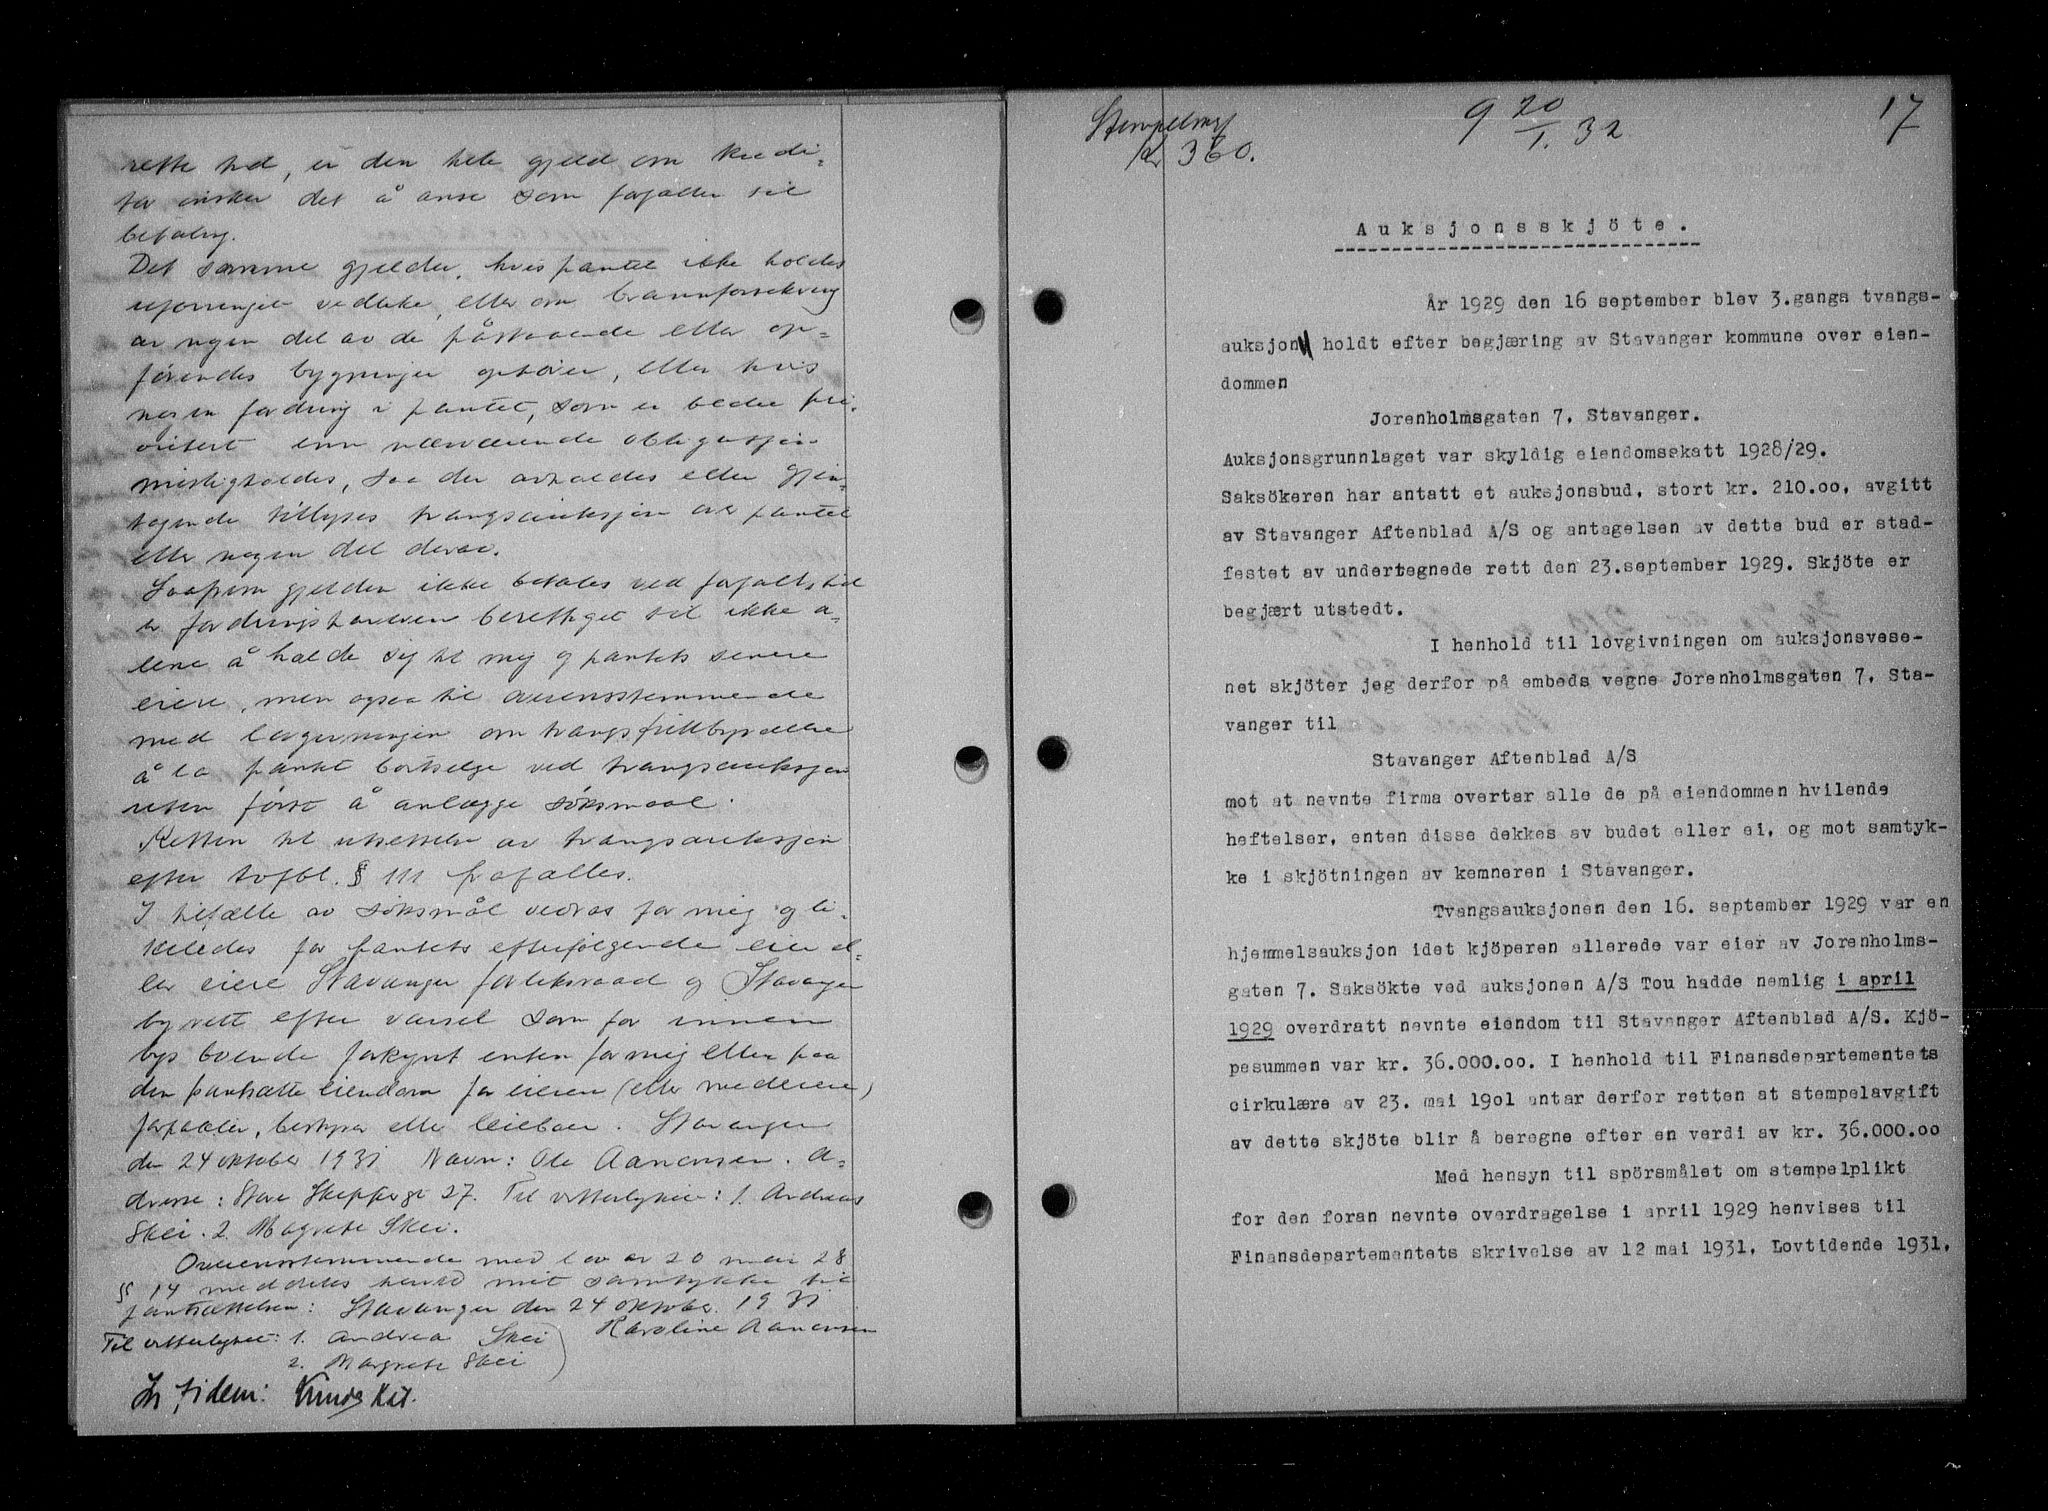 rette tid, er den hele gjeld om kredi-
tor ønsker det å anse som forfallen til
betaling.
Det samme gjelder, hvis pantet ikke holdes
uforringet vedlike, eller om brannforsikring
av nogen del av de påstaaende eller op-
førendes bygninger ophører, eller hvis
nogen fordring i pantet, som er bedre pri-
oritert enn nærværende obligasjon
misligholdes, saa der avholdes eller gjen-
tagende tillyses tvangsauksjon over pantet
eller nogen del derav.
Saafremt gjelden ikke betales ved forfallstid
er fordringshaveren berettiget til ikke a-
lene å holde sig til mig og pantets senere
eiere, men ogsaa til overensstemmende
med lovgivningen om tvangsfullbyrdelse
å la pantet bortselge ved tvangsauksjon
uten først å anlægge søksmaal.
Retten til utsettelse av tvangsauksjon
efter tvfbl. § 111 frafalles.
I tilfælle av søksmål vedtas for mig og li-
keledes for pantets efterfølgende eier el-
ler eiere Stavanger forliksraad og Stavanger
byrett efter varsel som for innen
bys boende forkynt enten for mig eller paa
den pantsatte eiendom for eieren (eller medeiere)
forpakter, bestyrer eller leieboer. Stavanger
den 24 oktober 1931 Navn: Ole Aanensen. A-
dresse: Store Skippergt 27. Til vitterlighet: 1. Andreas
Skei. 2. Magrete Skei.
Overensstemmende med lov av 20 mai 28
§ 14 meddeles herved mit samtykke til
pantsættelsen: Stavanger den 24 oktober 1931
Karoline Aanensen
Til vitterlighet: 1. Andrea Skei
2. Margrete Skei
In fidem:
Stempelavg
kr 360.
9 20/1. 32
17
Auksjonsskjöte.
År 1929 den 16 september blev 3.gangs tvangs-
auksjon holdt efter begjæring av Stavanger kommune over eien-
dommen
Jorenholmsgaten 7, Stavanger.
Auksjonsgrunnlaget var skyldig eiendomsskatt 1928/29.
Saksökeren har antatt et auksjonsbud, stort kr. 210.00, avgitt
av Stavanger Aftenblad A/S og antagelsen av dette bud er stad-
festet av undertegnede rett den 23.september 1929. Skjöte er
begjært utstedt.
I henhold til lovgivningen om auksjonsvese-
net skjöter jeg derfor på embeds vegne Jorenholmsgaten 7, Sta-
vanger til
Stavanger Aftenblad A/S
mot at nevnte firma overtar alle de på eiendommen hvilende
heftelser, enten disse dekkes av budet eller ei, og mot samtyk-
ke i skjötningen av kemneren i Stavanger.
Tvangsauksjonen den 16. september 1929 var en
hjemmelsauksjon idet kjöperen allerede var eier av Jorenholms-
gaten 7. Saksökte ved auksjonen A/S Tou hadde nemlig i april
1929 overdratt nevnte eiendom til Stavanger Aftenblad A/S. Kjö-
pesummen var kr. 36.000.00. I henhold til Finansdepartementets
cirkulære av 23. mai 1901 antar derfor retten at stempelavgift
av dette skjöte blir å beregne efter en verdi av kr. 36.000.00
Med hensyn til spörsmålet om stempelplikt
for den foran nevnte overdragelse i april 1929 henvises til
Finansdepartementets skrivelse av 12 mai 1931, Lovtidende 1931,